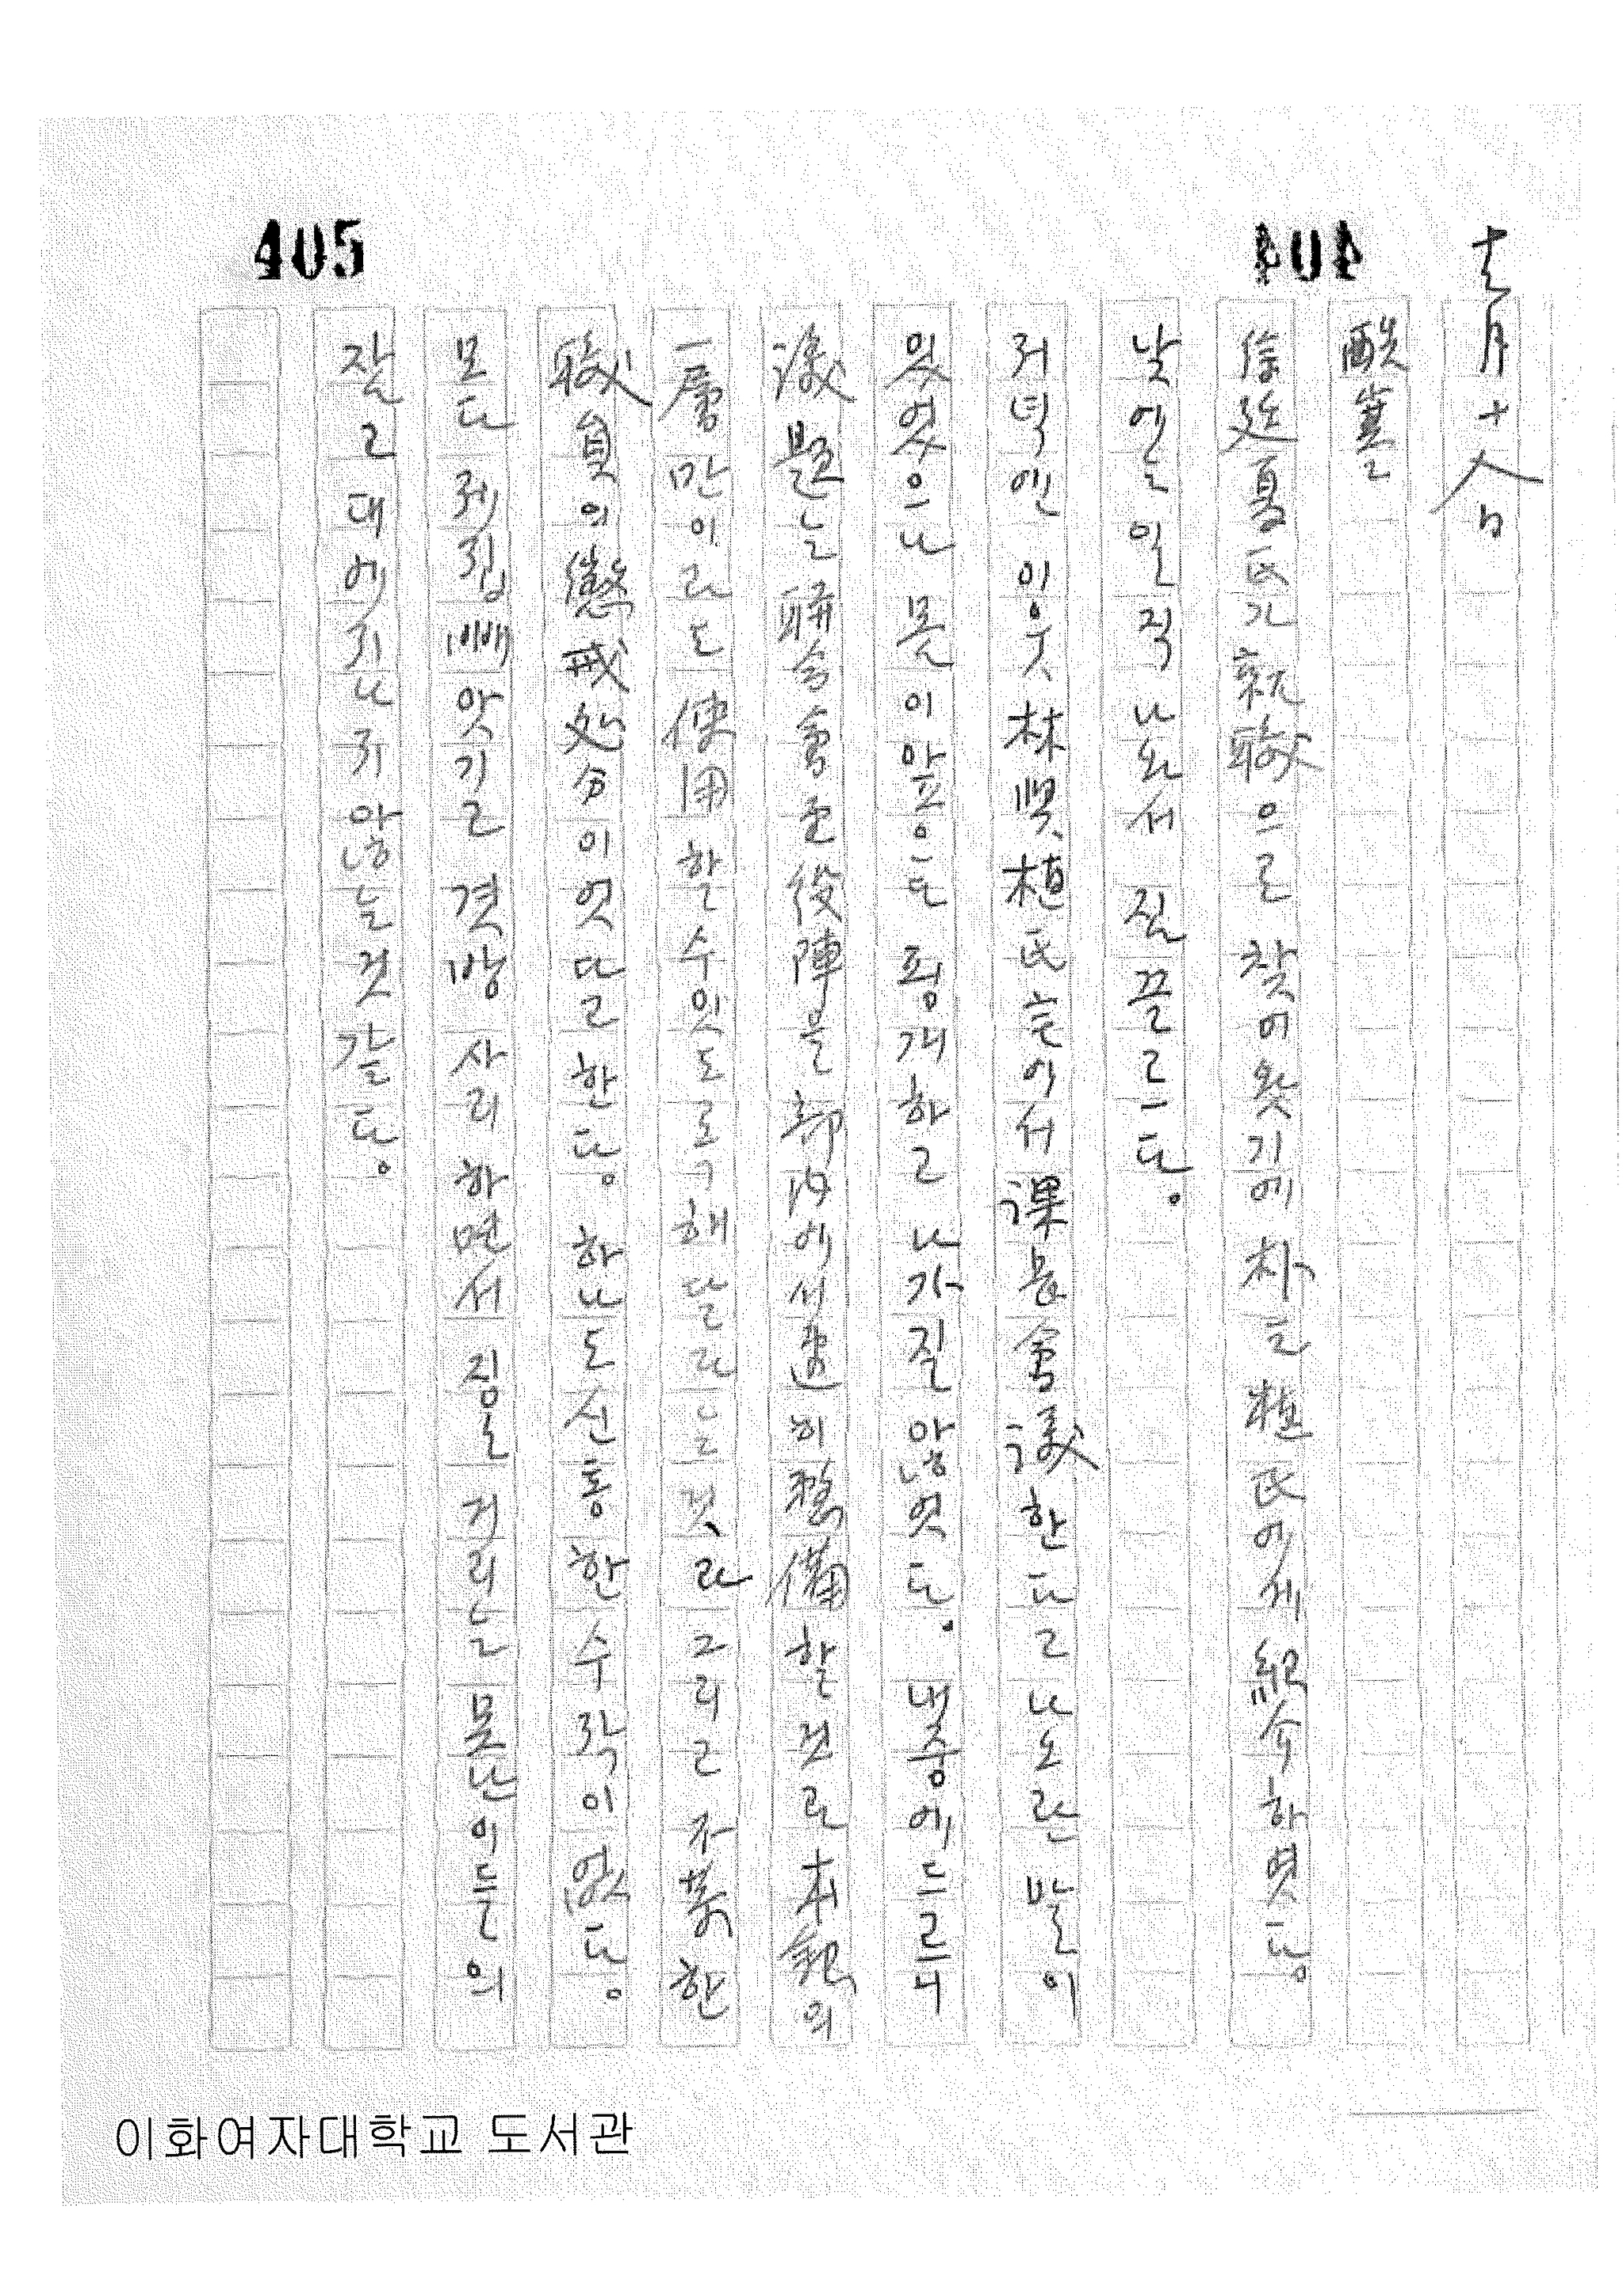 404
405
十一月十八日
酷寒고
徐廷夏氏가 親職으로 찾어왓기에 朴云植氏에게 紹介하엿다。
낮에는 일직 나와서 집끌르다。
저녁엔 이웃 林奬植氏 늘어서 課長會議한다고 나오란 말이
잇엇으나 몸이 앞흠도 핑개하고 나가질 않엇다。 내중에 드르니
議題는 聯合會로 役陣을 部內에서 速히 整備할 것과 本館의
一層만이라도 使用할 수 잇도록 해달라는 것과 그리고 자 한
職員의 懲戒処分이엇다고 한다。 하나도 신통한 수작이 없다。
모다 제집 빼앗기고 겻방사리 하면서 짐늘거리는 못난이들의
잘고대에 지나지 않는 것 같다。
이화여자대학교 도서관